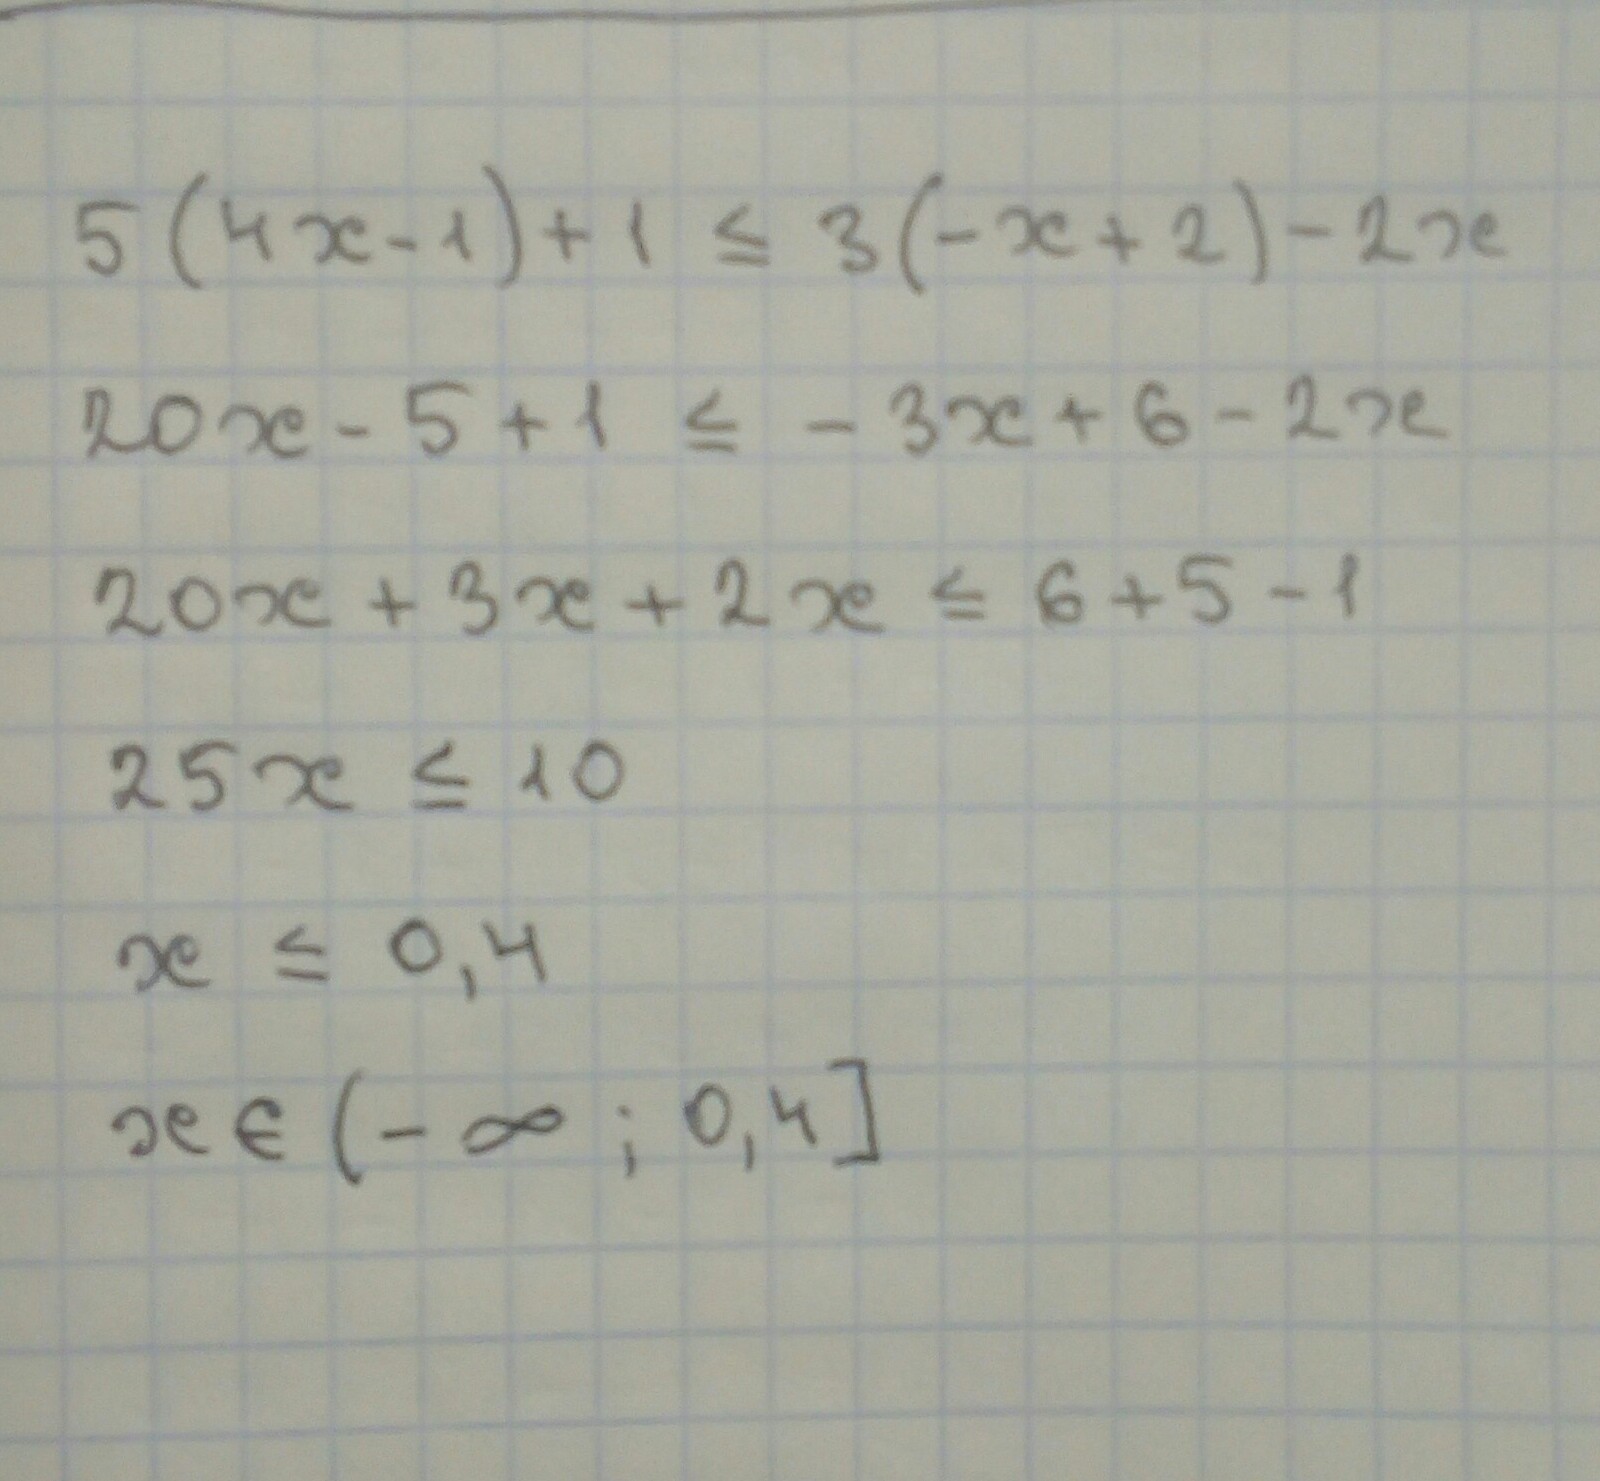 5(4x-1)+1 ≤ 3(-x+2)-2x
20x-5+1 ≤ -3x+6-2x
20x+3x+2x ≤ 6+5-1
25x ≤ 10
x ≤ 0,4
x∈(-∞;0,4]